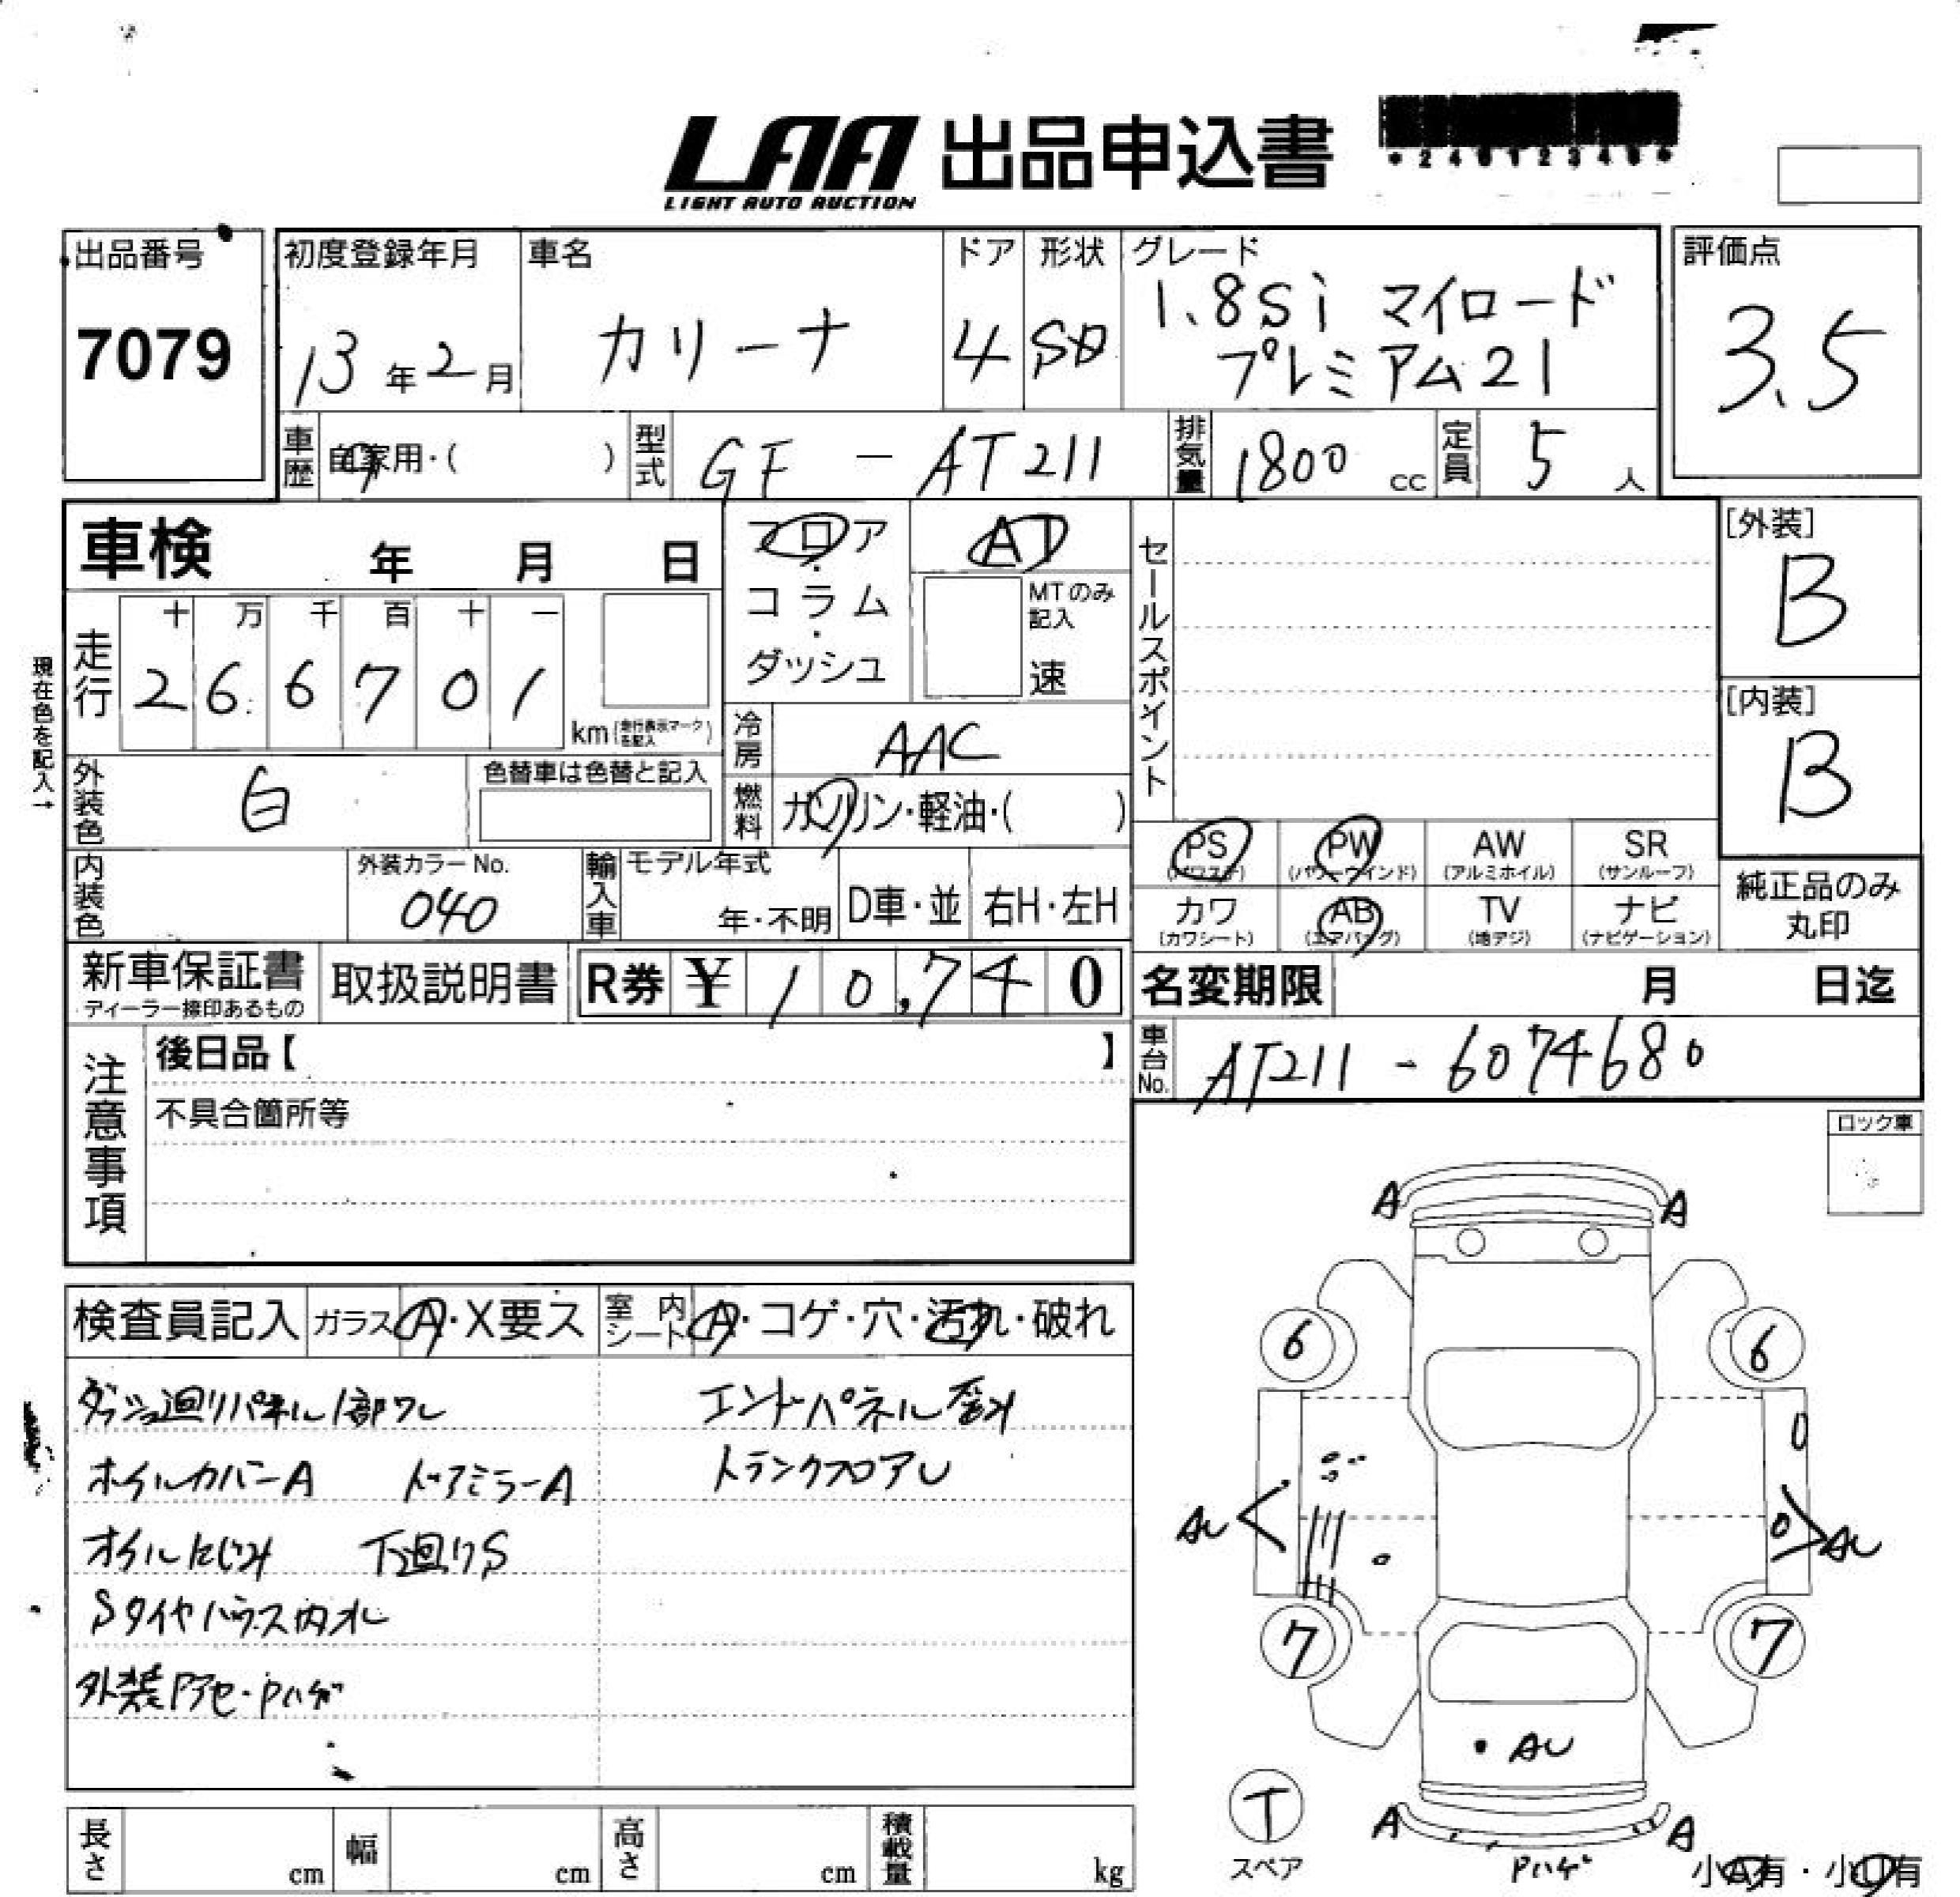 LAA 出品申込書
LIGHT AUTO AUCTION
*2401234
出品番号
7079
初度登録年月
13年2月
車名
カリーナ
ドア
4
形状
SD
グレード
1.8Si マイロード
プレミアム21
評価点
3.5
車歴
自家用・( )
型式
GF - AT211
排気量
1800 cc
定員
5 人
車検 年 月 日
フロア・コラム・ダッシュ
AT
MTのみ記入
速
セールスポイント
[外装]
B
[内装]
B
現在色を記入→
走行
十 万 千 百 十 一
2 6 6 7 0 1
km(走行表示マークを記入)
冷房
AAC
外装色
白
色替車は色替と記入
燃料
ガソリン・軽油・( )
PS (パワステ)
PW (パワーウインド)
AW (アルミホイル)
SR (サンルーフ)
カワ (カワシート)
AB (エアバッグ)
TV (地デジ)
ナビ (ナビゲーション)
純正品のみ
丸印
内装色
外装カラーNo.
040
輸入車
モデル年式
年・不明
D車・並
右H・左H
新車保証書
ディーラー捺印あるもの
取扱説明書
R券 ¥ 10,740
名変期限 月 日迄
車台No.
AT211 - 6074680
注意事項
後日品【 】
不具合箇所等
ロック車
検査員記入
ガラス A・X要ス
室内シート A・コゲ・穴・汚れ・破れ
ダッシュ廻りパネル1部ワレ
エンドパネル歪み
ホイルカバーA ドアミラーA
トランクフロアU
オイルにじみ 下廻りS
Sタイヤハウス内オレ
外装Pアセ・Pハゲ
A A
6 6
AU AU
7 7
AU
T
スペア
A A
Pハゲ
小A有・小U有
長さ cm
幅 cm
高さ cm
積載量 kg